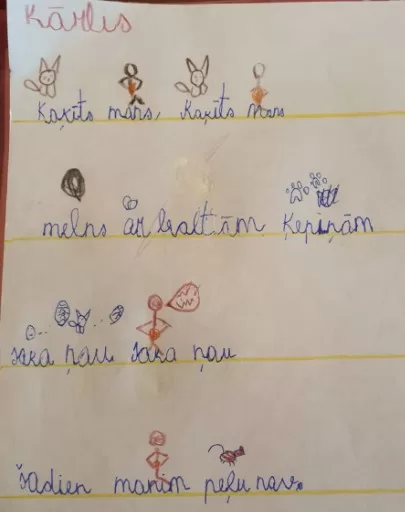 Kārlis
Kaķīts mans, Kaķīts mans
melns ār baltām ķepiņām
saka ņau saka ņau
šadien manim peļu nav.